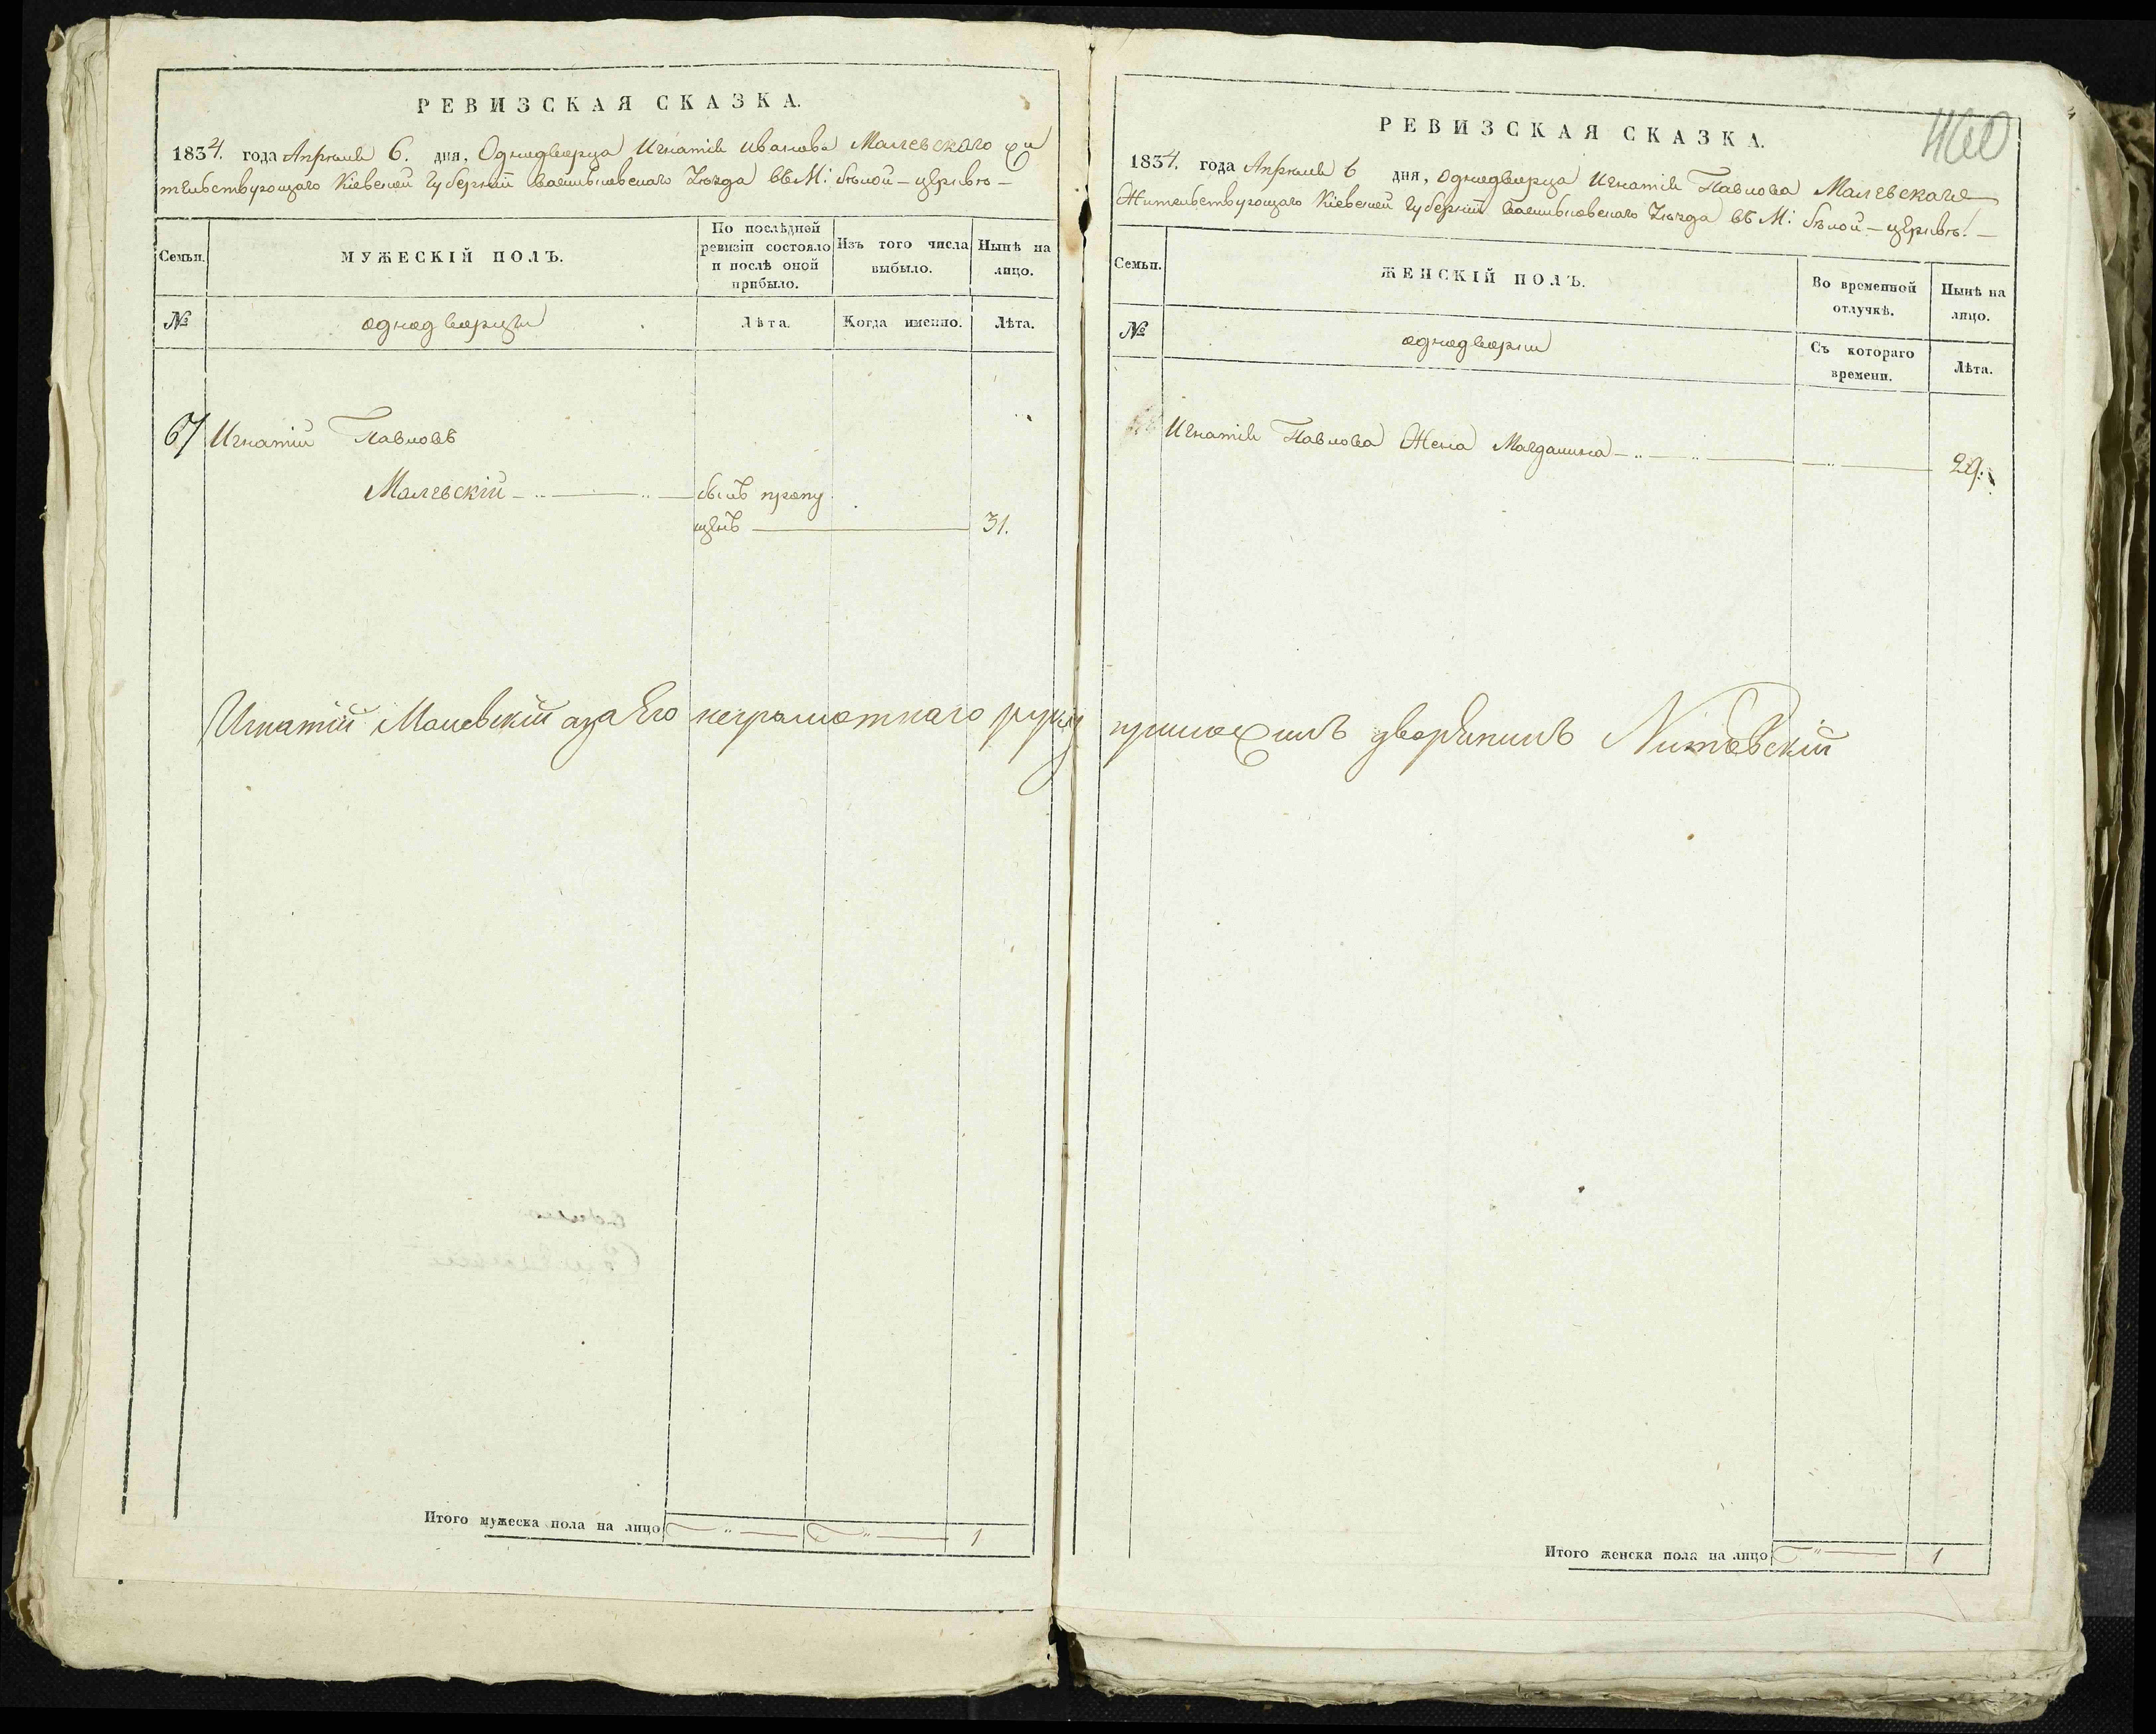 РЕВИЗСКАЯ СКАЗКА.
1834. года Апреля 6. дня, Однодворца Игнатія Иванова Малевскаго жи
тельствующаго Кіевской губерніи Васильковскаго уѣзда въ М: бѣлой-церквѣ-
Семьи.
МУЖЕСКІЙ ПОЛЪ.
По послѣдней ревизіи состояло и послѣ оной прибыло.
Изъ того числа выбыло.
Нынѣ на лицо.
№
однодворцы
Лѣта.
Когда именно.
Лѣта.
67 Игнатій Павловъ
Малевскій былъ пропу
щенъ 31.
Игнатій Малевскій а за Его неграмотнаго руку
Итого мужеска пола на лицо 1
РЕВИЗСКАЯ СКАЗКА.
1834. года Апреля 6 дня, однодворца Игнатія Павлова Малевскаго
Жительствующаго Кіевской губерніи Васильковскаго уѣзда въ М: бѣлой-церквѣ.-
Семьи.
ЖЕНСКІЙ ПОЛЪ.
Во временной отлучкѣ.
Нынѣ на лицо.
№
однодворки
Съ котораго времени.
Лѣта.
Игнатія Павлова Жена Магдалина 29.
приложилъ дворянинъ
Итого женска пола на лицо 1